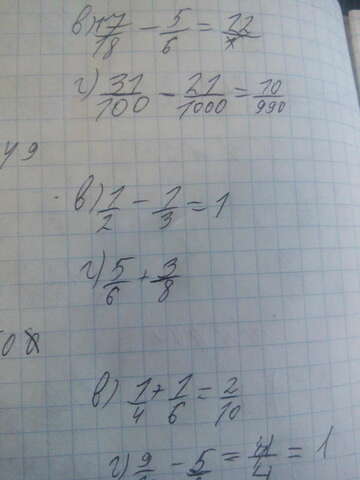 в) 17/18 - 5/6 = 12/
г) 31/100 - 21/1000 = 10/990
49
в) 1/2 - 1/3 = 1
г) 5/6 + 3/8
50
в) 1/4 + 1/6 = 2/10
г) 9/ - 5/ = 4/4 = 1